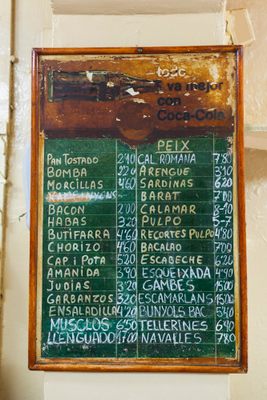 todo
va mejor
con
Coca-Cola
PEIX
PAN TOSTADO 2'40
BOMBA 2'20
MORCILLAS 4'60
BACON 2'00
HABAS 3'20
BUTIFARRA 4'60
CHORIZO 4'60
CAP i POTA 5'20
AMANIDA 3'90
JUDIAS 3'20
GARBANZOS 3'20
ENSALADILLA 4'40
MUSCLOS 6'50
LLENGUADO 17'00
CAL ROMANA 7'80
ARENGUE 3'90
SARDINAS 6'20
BARAT 7'00
CALAMAR
PULPO 5-7
RECORTES PULPO 4'80
BACALAO 7'00
ESCABECHE 6'20
ESQUEIXADA 4'90
GAMBES 15'00
ESCAMARLANS 15'00
BUNYOLS BAC 5'40
TELLERINES 6'40
NAVALLES 7'80